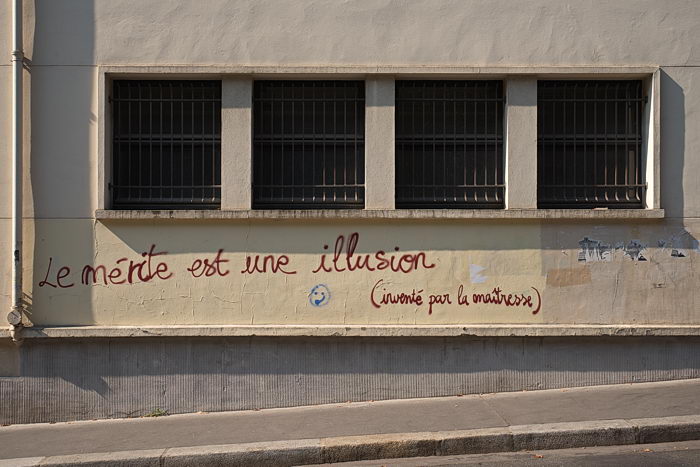 Le mérite est une illusion
(inventé par la maîtresse)